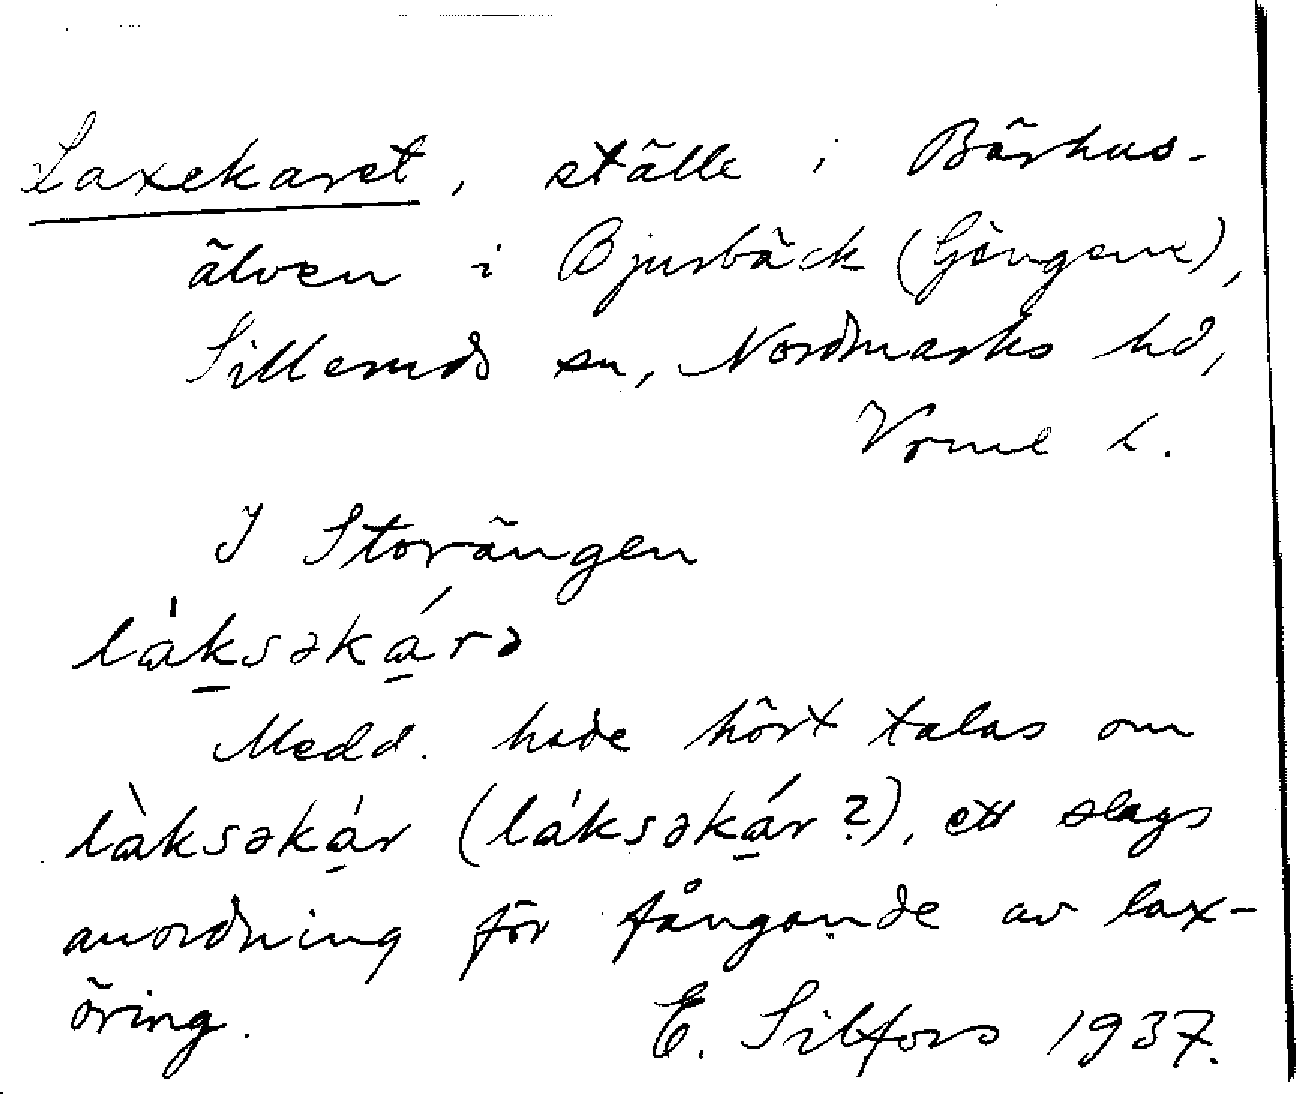 Laxekaret, ställe i Bärhus-
älven i Bjurbäck (Göngene),
Silleruds sn, Nordmarks hd,
Vrml l.
I Storängen
làksəkárə
Medd. hade hört talas om
làksəkár (láksəkár?), ett slags
anordning för fångande av lax-
öring.
E. Silfors 1937.